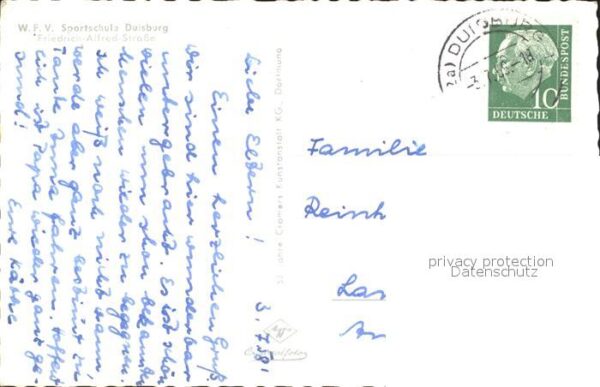 W. F. V. Sportschule Duisburg
Friedrich-Alfred-Straße
3. 7. 58.
Liebe Eltern!
Einen herzlichen Gruß
Wir sind hier wunderbar
untergebracht. Es ist schön
vielen nun schon bekannten
Menschen wieder zu begegnen.
Ich weiß noch nicht wann,
werde aber ganz bestimmt zu
Tante Anna fahren. Hoffentl.
ich ist Papa wieder ganz ge-
sund!
Eure Käthe
25 Jahre Cramers Kunstanstalt KG., Dortmund
DUISBURG
3.7.58-18
10
DEUTSCHE
BUNDESPOST
Familie
Reinh
Las
An
privacy protection
Datenschutz